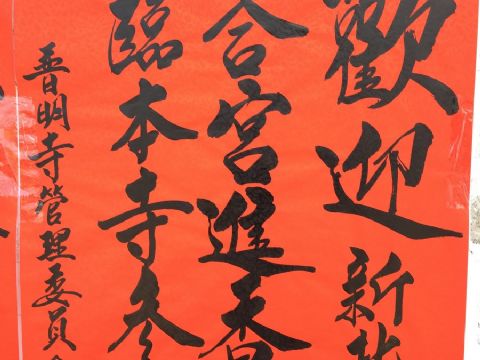 歡迎新
合宮進香
臨本寺參
普明寺管理委員